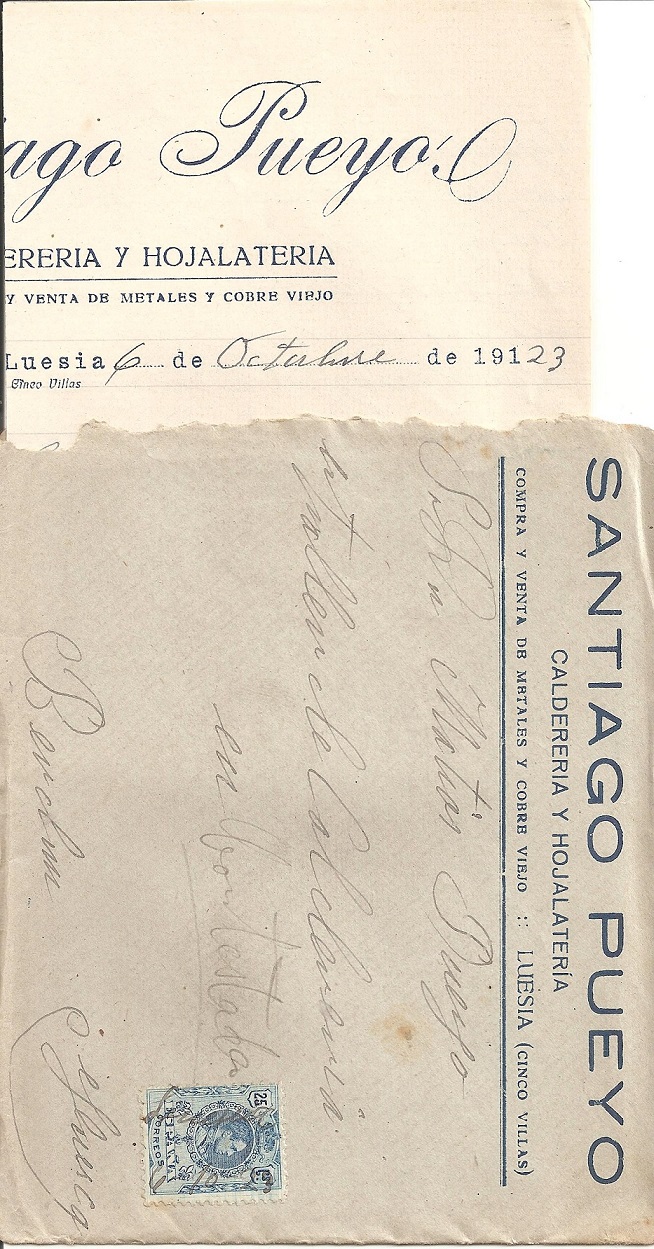 ago Pueyo
ERERIA Y HOJALATERIA
Y VENTA DE METALES Y COBRE VIEJO
Luesia 6 de Octubre de 19123
Cinco Villas
SANTIAGO PUEYO
CALDERERIA Y HOJALATERÍA
COMPRA Y VENTA DE METALES Y COBRE VIEJO :: LUESIA (CINCO VILLAS)
Matias Pueyo
de Caldereria
en
Contestada
Huesca
25
ESPAÑA
CORREOS